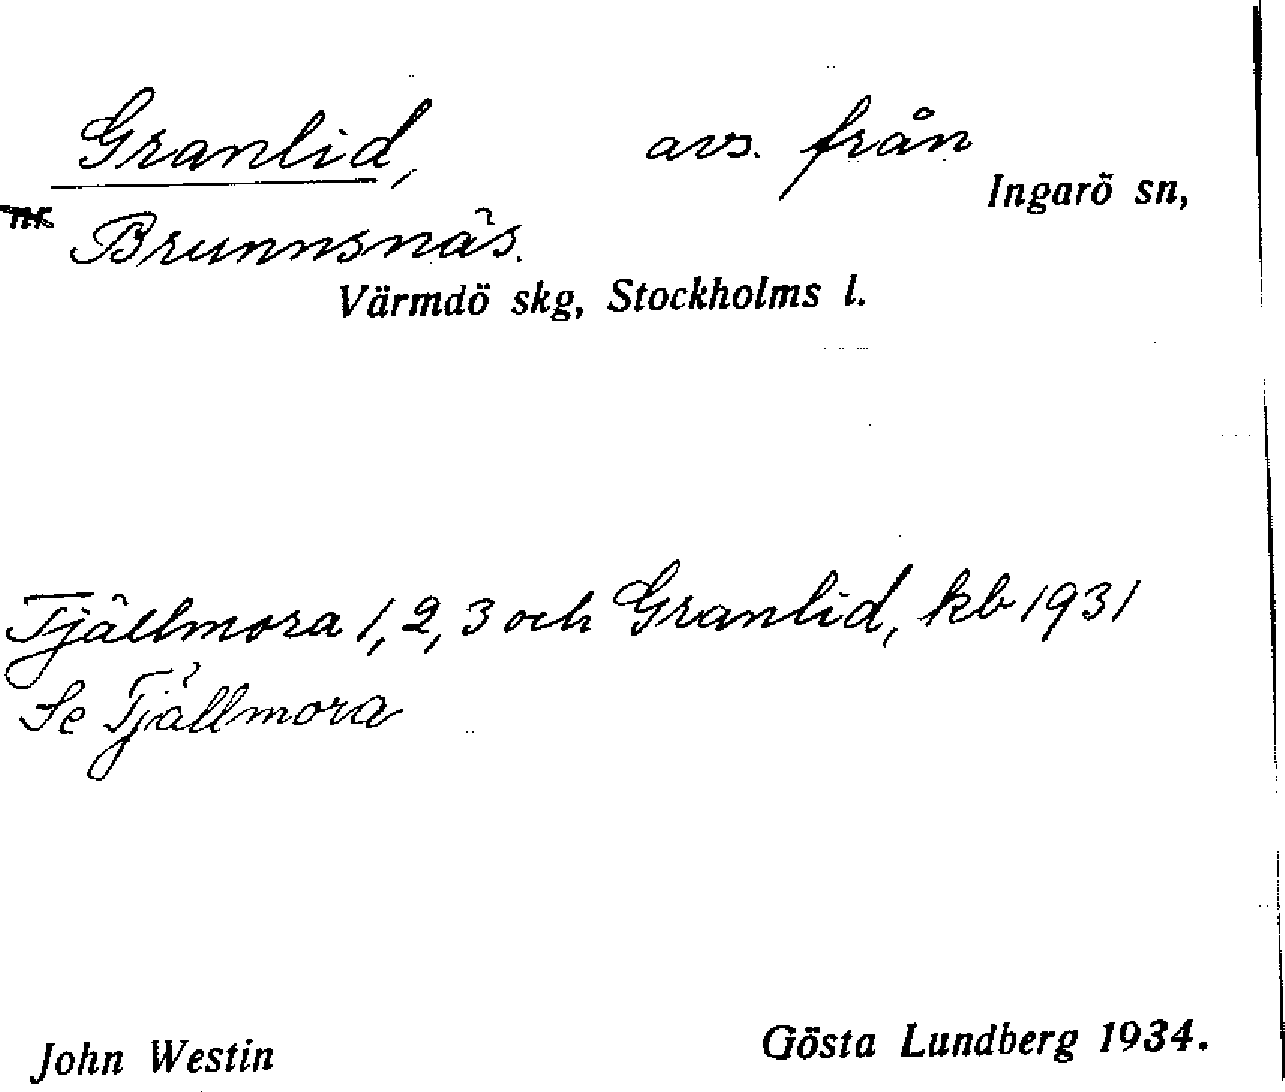 Granlid, avs. från
Ingarö sn,
Brunnsnäs.
Värmdö skg, Stockholms l.
Tjällmora 1, 2, 3 och Granlid, kb 1931
Se Tjällmora
John Westin Gösta Lundberg 1934.